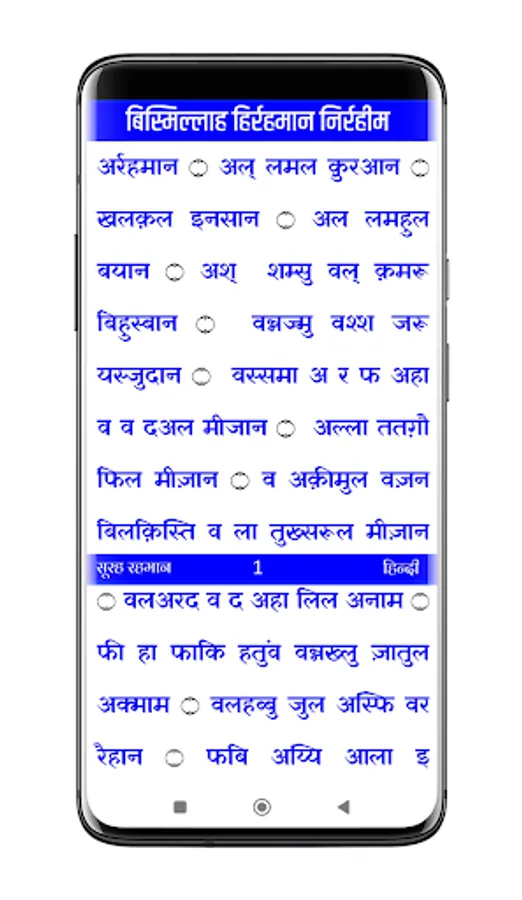 बिस्मिल्लाह हिर्रहमान निर्रहीम
अर्रहमान ۝ अल् लमल क़ुरआन ۝
खलक़ल इनसान ۝ अल लमहुल
बयान ۝ अश् शम्सु वल् क़मरू
बिहुस्बान ۝ वन्नज्मु वश्श जरू
यस्जुदान ۝ वस्समा अ र फ अहा
व व दअल मीजान ۝ अल्ला ततग़ौ
फिल मीज़ान ۝ व अक़ीमुल वज़न
बिलक़िस्ति व ला तुख्सरूल मीज़ान
सूरह रहमान 1 हिन्दी
۝ वलअरद व द अहा लिल अनाम ۝
फी हा फाकि हतुंव वन्नख्लु ज़ातुल
अक्माम ۝ वलहब्बु जुल अस्फि वर
रैहान ۝ फबि अय्यि आला इ